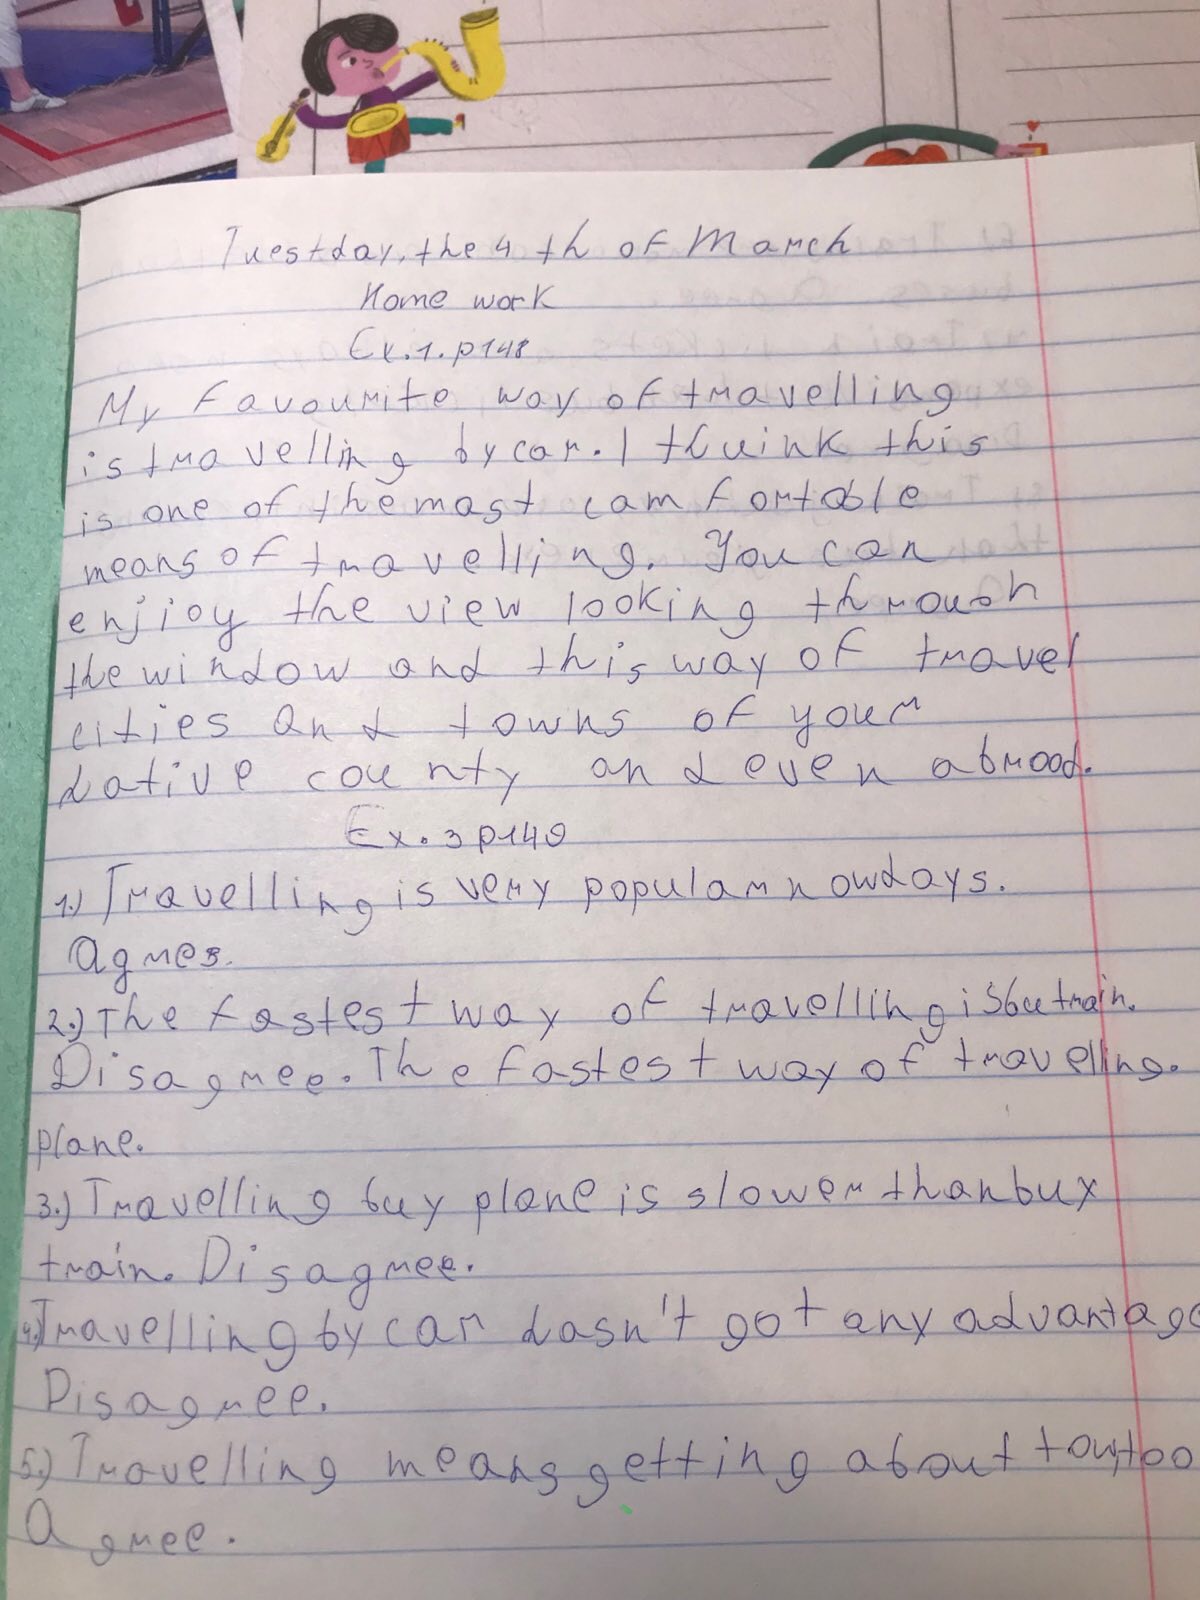 Tuestday, the 4 th of March
Home work
Ex.1.p148
My favourite way of travelling
is travelling by car. I thuink this
is one of the mast camfortable
means of travelling. You can
enjioy the view looking through
the window and this way of travel
cities and towns of your
dative county and even abroad.
Ex.3 p149
1.) Travelling is very popular nowdays.
Agree.
2.) The fastest way of travelling is bu train.
Disagree. The fastest way of travelling.
plane.
3.) Travelling buy plane is slower than buy
train. Disagree.
4.) Travelling by car dasn't got any advantage
Disagree.
5.) Travelling means getting about town, too
Agree.